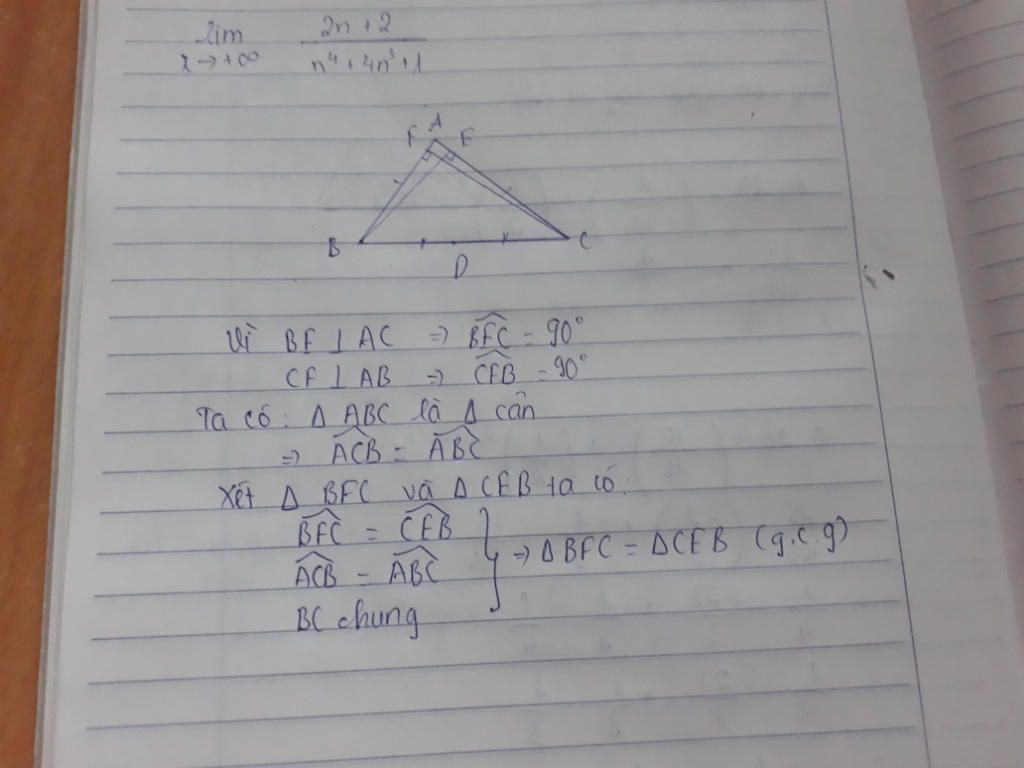 lim 2n + 2
x → +∞ n⁴ + 4n³ + 1
F A E
B C
D
Vì BE ⊥ AC ⇒ BEC = 90°
CF ⊥ AB ⇒ CFB = 90°
Ta có: Δ ABC là Δ cân
⇒ ACB = ABC
Xét Δ BEC và Δ CFB ta có:
BEC = CFB
ACB = ABC ⇒ Δ BEC = Δ CFB (g.c.g)
BC chung